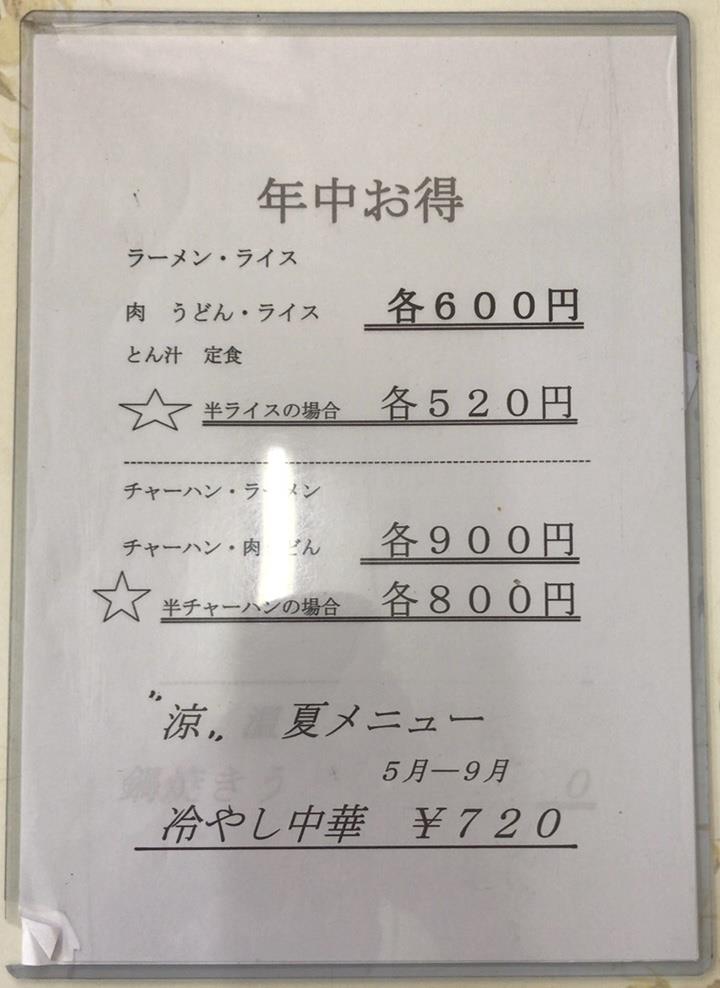 年中お得
ラーメン・ライス
肉　うどん・ライス　各６００円
とん汁　定食
☆ 半ライスの場合　各５２０円
チャーハン・ラーメン
チャーハン・肉うどん　各９００円
☆ 半チャーハンの場合　各８００円
〝涼〟 夏メニュー
５月―９月
冷やし中華　￥７２０